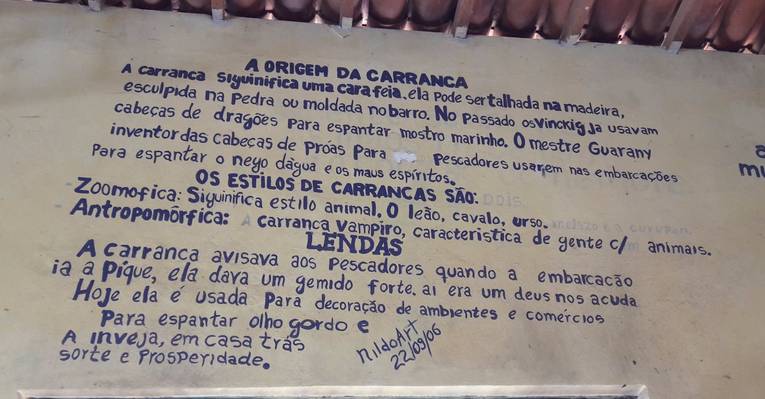 A ORIGEM DA CARRANCA
A carranca Siguinifica uma cara feia. ela Pode ser talhada na madeira,
esculpida na Pedra ou moldada no barro. No Passado os Vinckig Ja usavam
cabeças de dragões Para espantar mostro marinho. O mestre Guarany
inventor das cabeças de Prôas Para Pescadores usarem nas embarcações
Para espantar o nego dágua e os maus espíritos.
OS ESTILOS DE CARRANCAS SÃO:
Zoomofica: Siguinifica estilo animal. O leão, cavalo, urso.
Antropomôrfica: A carranca Vampiro, caracteristica de gente c/ animais.
LENDAS
A carranca avisava aos Pescadores quando a embarcacão
ia a Pique, ela dava um gemido forte. ai era um deus nos acuda
Hoje ela é usada Para decoração de ambientes e comércios
Para espantar olho gordo e
A inveja, em casa trás
sorte e Prosperidade.
nildo Art
22/09/06
mu